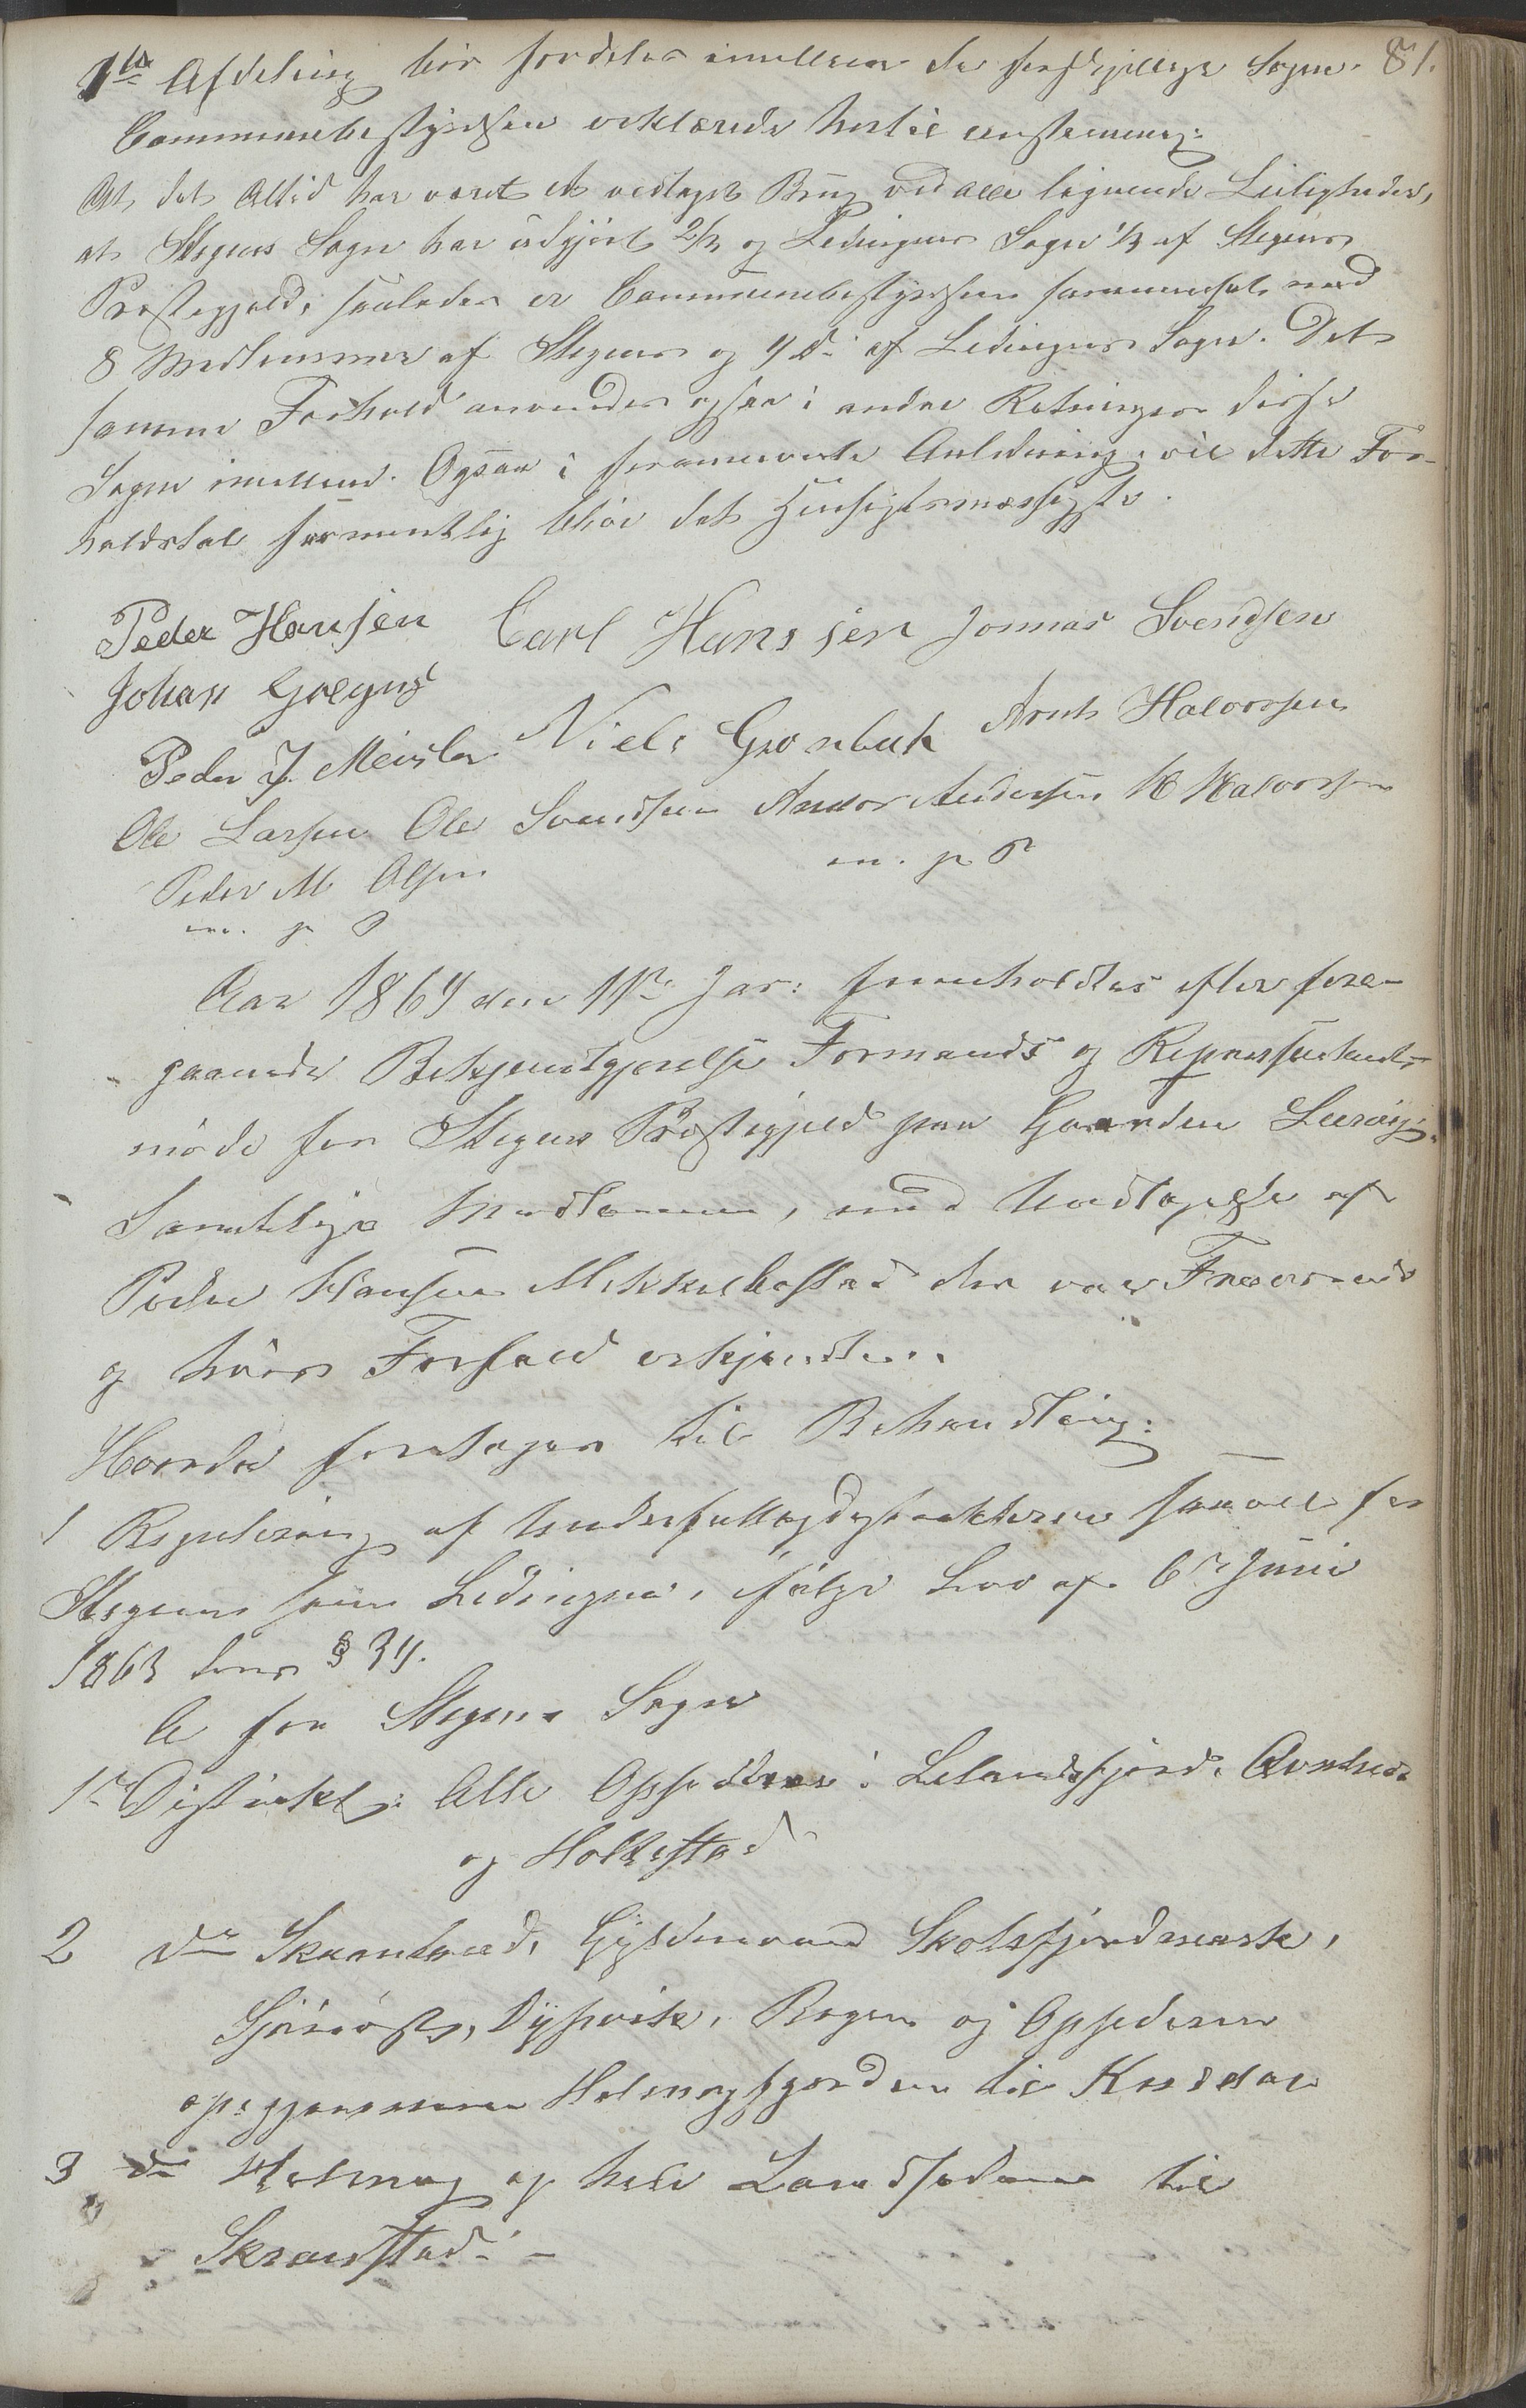 81.
1ste Afdeling bør fordeles imellem de forskjellige Sogne.
Communebestyrelsen erklærede hertil eenstemmig:
At det altid har været et vedtaget Brug ved alle lignende Leiligheder,
at Stegens Sogn har udgjort 2/3 og Ledingens Sogn 1/3 af Stegens
Præstegjeld, saaledes er Communebestyrelsen sammensat med
8 Medlemmer af Stegens og 4 do af Ledingens Sogn. Det
samme Forhold anvendes ogsaa i andre Retninger disse
Sogne imellem. Ogsaa i forannævnte Anledning vil dette For-
holdstal formentlig blive det Hensigtsmæssigste.
Peder Hansen Carl Hanssen Jonnas Svendsen
Johan
Peder J. Meisler Niels Grønbeck Arnt Halvorsen
Ole Larsen Ole Svendsen Andor Andersen H Halvorsen
m. p P
Peder M Olsen
m. p P
Aar 1864 den 11te Jar: fremholdtes efter fore-
gaaende Bekjendtgjørelse Formands og Repræsentant-
møde for Stegens Præstegjeld paa Gaarden Leerøig.
Samtlige Medlemmer, med Undtagelse af
Peder Hansen Mikkelbostad der var Fraværende
og hvis Forfald erkjendtes.
Hvorda foretages til Behandling:
1 Regulering af Underfattigdistrikterne saavel for
Stegens som Ledingen, ifølge Lov af 6te Juni
1863 dens § 34.
A for Stegens Sogn
1te Distrikt: Alle Opsidderne i Leinesfjord,
og Holkestad
2 do Skaanland, Skotsfjordmark,
Dypvik, Bogen og Opsidderne
Helnægfjorden til
3 do Helnæg og hele Landsiden til
Skranstad. -